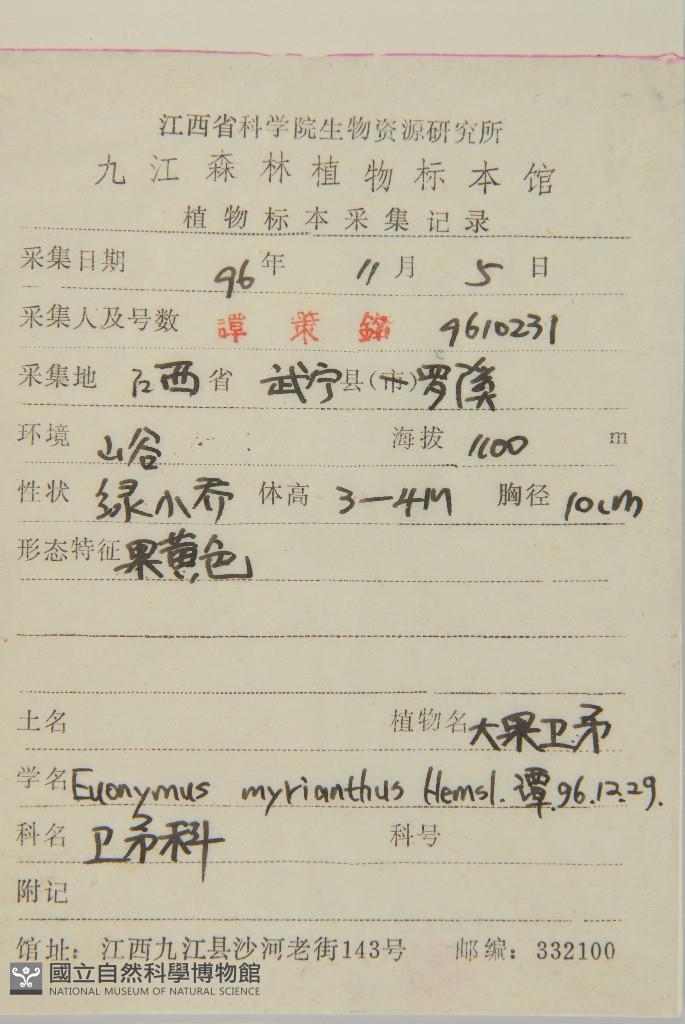 江西省科学院生物资源研究所
九江森林植物标本馆
植物标本采集记录
采集日期 96年 11月 5日
采集人及号数 譚策銘 9610231
采集地 江西省 武宁县(市)罗溪
环境 山谷 海拔 1100 m
性状 绿小乔 体高 3—4M 胸径 10cm
形态特征 果黄色
土名 植物名 大果卫矛
学名 Euonymus myrianthus Hemsl. 譚.96.12.29.
科名 卫矛科 科号
附记
馆址：江西九江县沙河老街143号 邮编：332100
國立自然科學博物館
NATIONAL MUSEUM OF NATURAL SCIENCE